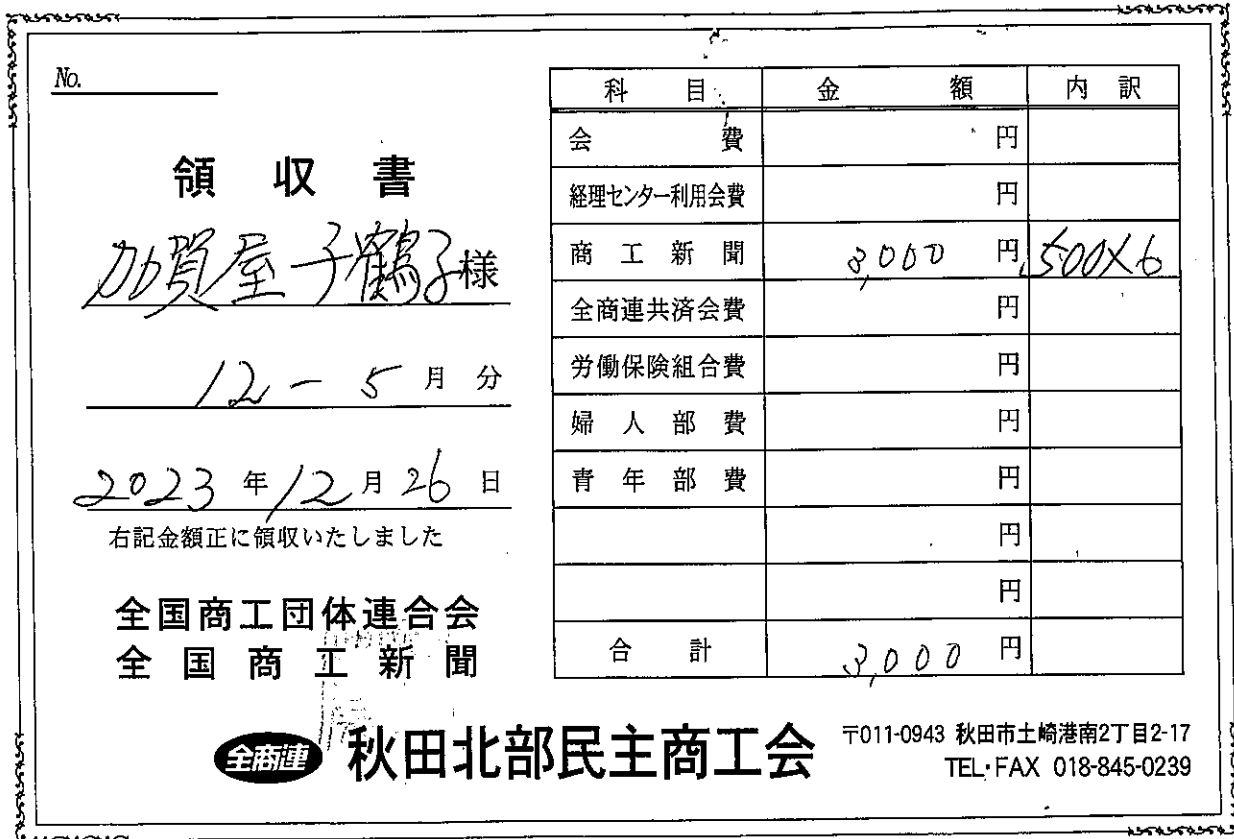 No.
領収書
加賀屋千鶴子様
12-5月分
2023年12月26日
右記金額正に領収いたしました
全国商工団体連合会
全国商工新聞
科目 金額 内訳
会費 円
経理センター利用会費 円
商工新聞 3,000円 500×6
全商連共済会費 円
労働保険組合費 円
婦人部費 円
青年部費 円
円
円
合計 3,000円
全商連 秋田北部民主商工会
〒011-0943 秋田市土崎港南2丁目2-17
TEL・FAX 018-845-0239